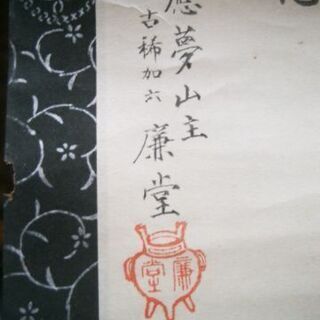 應夢山主
古稀加六 廉堂
廉堂